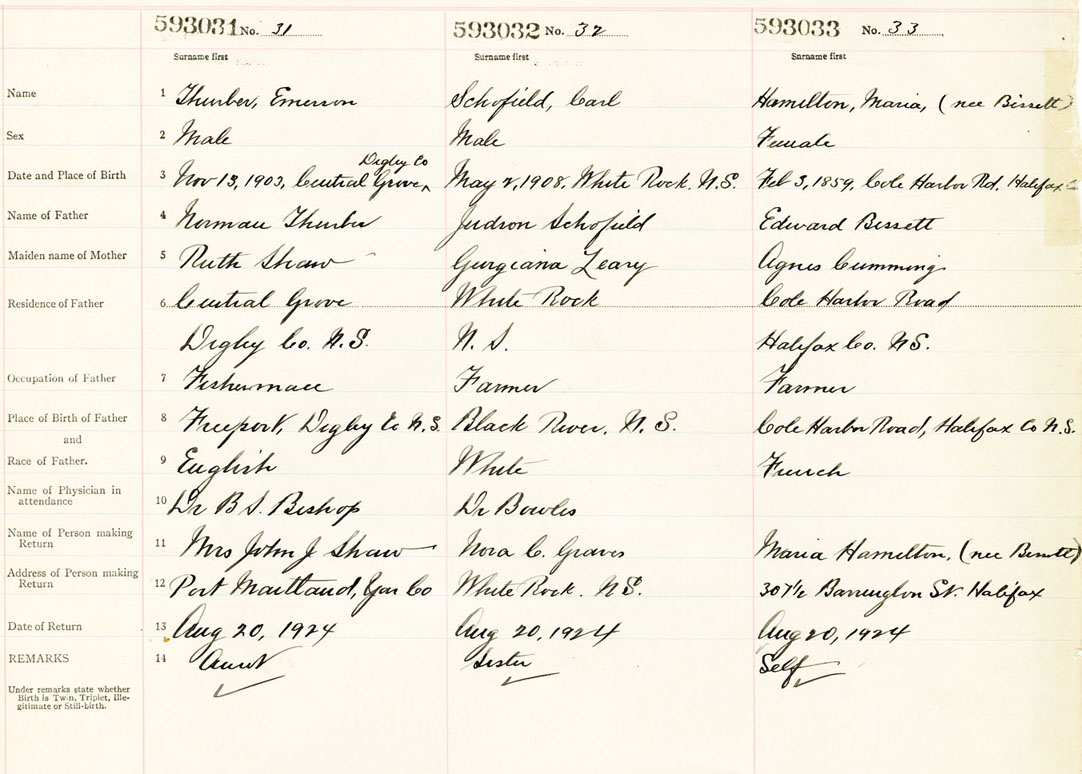 593031 No. 31 593032 No. 32 593033 No. 33
Surname first Surname first Surname first
Name 1 Thurber, Emerson Schofield, Carl Hamilton, Maria, (nee Bissett)
Sex 2 Male Male Female
Digby Co
Date and Place of Birth 3 Nov 13, 1903, Central Grove, May 2, 1908, White Rock, N.S. Feb 3, 1859, Cole Harbor Rd, Halifax Co
Name of Father 4 Norman Thurber Judson Schofield Edward Bissett
Maiden name of Mother 5 Ruth Shaw Gurgiana Leary Agnes Cumming
Residence of Father 6 Central Grove White Rock Cole Harbor Road
Digby Co. N.S. N.S. Halifax Co. N.S.
Occupation of Father 7 Fisherman Farmer Farmer
Place of Birth of Father 8 Freeport, Digby Co N.S. Black River, N.S. Cole Harbor Road, Halifax Co N.S.
and
Race of Father. 9 English White French
Name of Physician in
attendance 10 Dr B S. Bishop Dr Bowles
Name of Person making
Return 11 Mrs John J Shaw Nora C. Graves Maria Hamilton, (nee Bissett)
Address of Person making
Return 12 Port Maitland, Yar Co White Rock. N.S. 307½ Barrington St. Halifax
Date of Return 13 Aug 20, 1924 Aug 20, 1924 Aug 20, 1924
REMARKS 14 Aunt Sister Self
Under remarks state whether
Birth is Twin, Triplet, Ille-
gitimate or Still-birth.